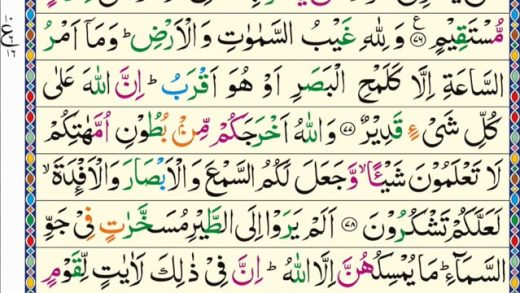 مُّسْتَقِيْمٍ ﴿۷۶﴾ ع وَلِلّٰهِ غَيْبُ السَّمٰوٰتِ وَالْاَرْضِ ؕ وَمَاۤ اَمْرُ
السَّاعَةِ اِلَّا كَلَمْحِ الْبَصَرِ اَوْ هُوَ اَقْرَبُ ؕ اِنَّ اللّٰهَ عَلٰى
كُلِّ شَىْءٍ قَدِيْرٌ ﴿۷۷﴾ وَاللّٰهُ اَخْرَجَكُمْ مِّنْۢ بُطُوْنِ اُمَّهٰتِكُمْ
لَا تَعْلَمُوْنَ شَيْـًٔا ۙ وَّجَعَلَ لَكُمُ السَّمْعَ وَالْاَبْصَارَ وَالْاَفْـِٕدَةَ ۙ
لَعَلَّكُمْ تَشْكُرُوْنَ ﴿۷۸﴾ اَلَمْ يَرَوْا اِلَى الطَّيْرِ مُسَخَّرٰتٍ فِىْ جَوِّ
السَّمَآءِ ؕ مَا يُمْسِكُهُنَّ اِلَّا اللّٰهُ ؕ اِنَّ فِىْ ذٰلِكَ لَاٰيٰتٍ لِّقَوْمٍ
۱۰
ع
۱۶